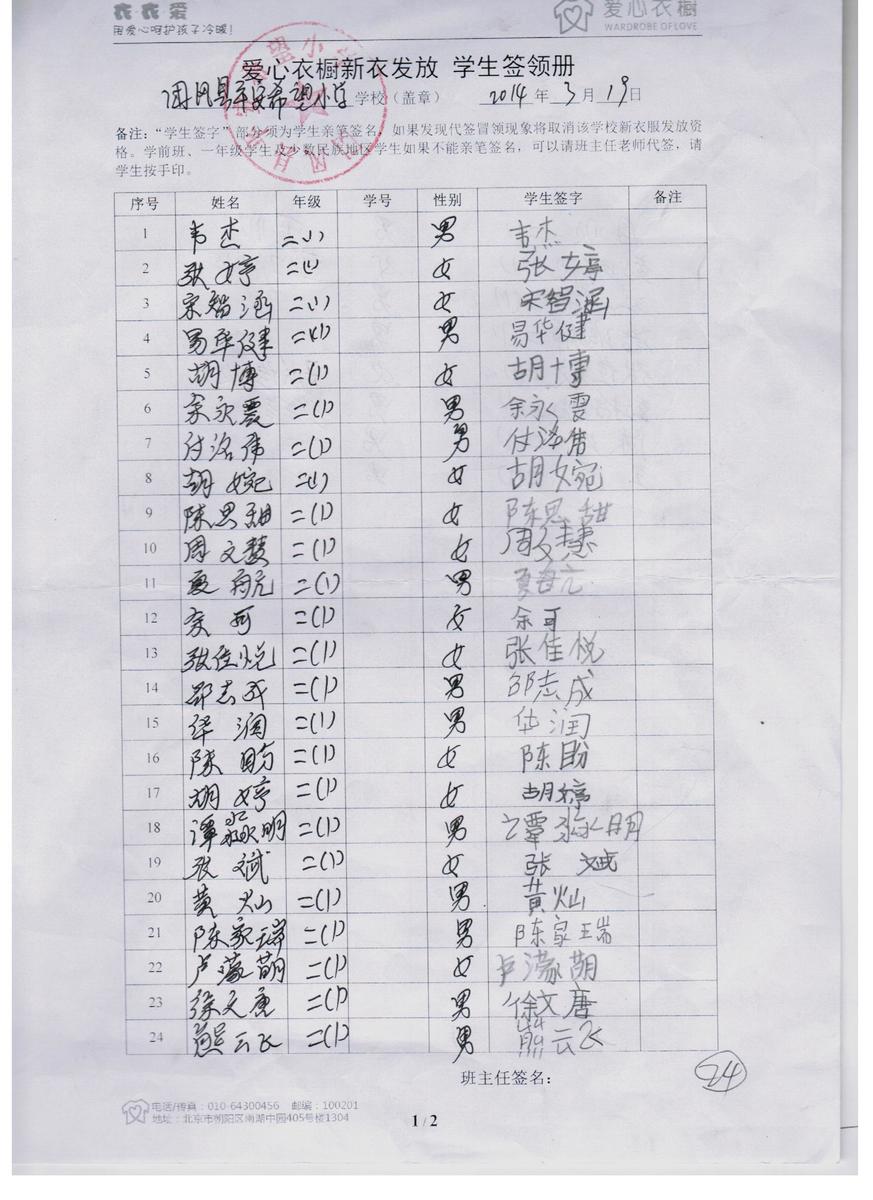 衣·衣·爱
用爱心呵护孩子冷暖!
爱心衣橱
WARDROBE OF LOVE
爱心衣橱新衣发放 学生签领册
平安希望小学 学校（盖章） 2014 年 3 月 19 日
备注：“学生签字”部分须为学生亲笔签名，如果发现代签冒领现象将取消该学校新衣服发放资
格。学前班、一年级学生及少数民族地区学生如果不能亲笔签名，可以请班主任老师代签，请
学生按手印。
序号 姓名 年级 学号 性别 学生签字 备注
1 韦杰 二(1) 男 韦杰
2 张婷 二(1) 女 张婷
3 宋智涵 二(1) 女 宋智涵
4 易华健 二(1) 男 易华健
5 胡博 二(1) 女 胡博
6 余永霞 二(1) 男 余永雯
7 付洛伟 二(1) 男
8 胡婉 二(1) 女 胡婉
9 陈思甜 二(1) 女 陈思甜
10 周文慧 二(1) 女 周文慧
11 夏 二(1) 男 夏
12 余可 二(1) 女 余可
13 张佳悦 二(1) 女 张佳悦
14 邵志成 二(1) 男 邵志成
15 华润 二(1) 男 华润
16 陈盼 二(1) 女 陈盼
17 胡婷 二(1) 女 胡婷
18 谭淼明 二(1) 男 谭淼明
19 张斌 二(1) 女 张斌
20 黄灿 二(1) 男 黄灿
21 陈家瑞 二(1) 男 陈家瑞
22 卢蒙萌 二(1) 女
23 徐文唐 二(1) 男 徐文唐
24 熊云飞 二(1) 男 熊云飞
班主任签名：
24
电话/传真：010-64300456 邮编：100201
地址：北京市朝阳区南湖中园405号楼1304
1 / 2